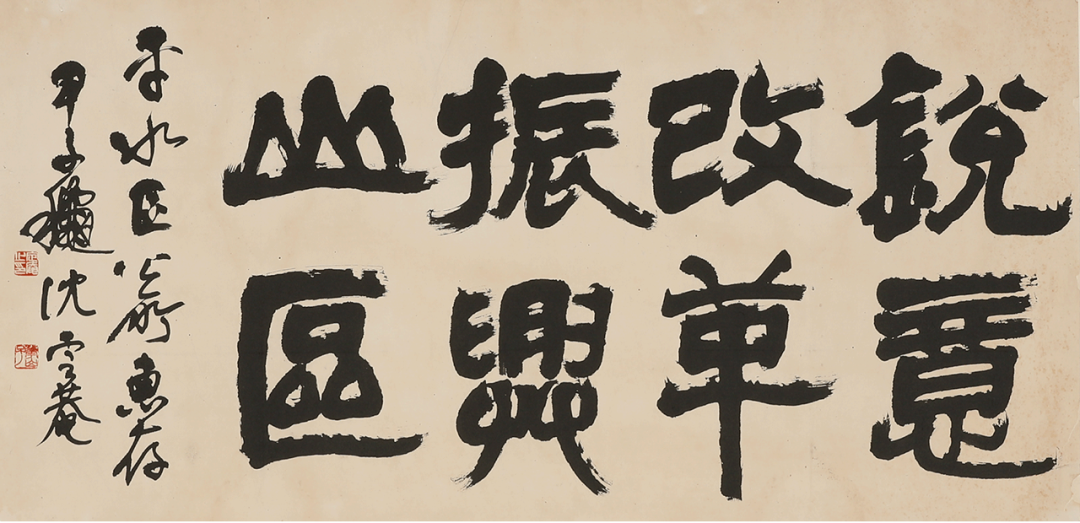 銳意
改革
振興
山區
平水区公所惠存
甲子龝沈定菴